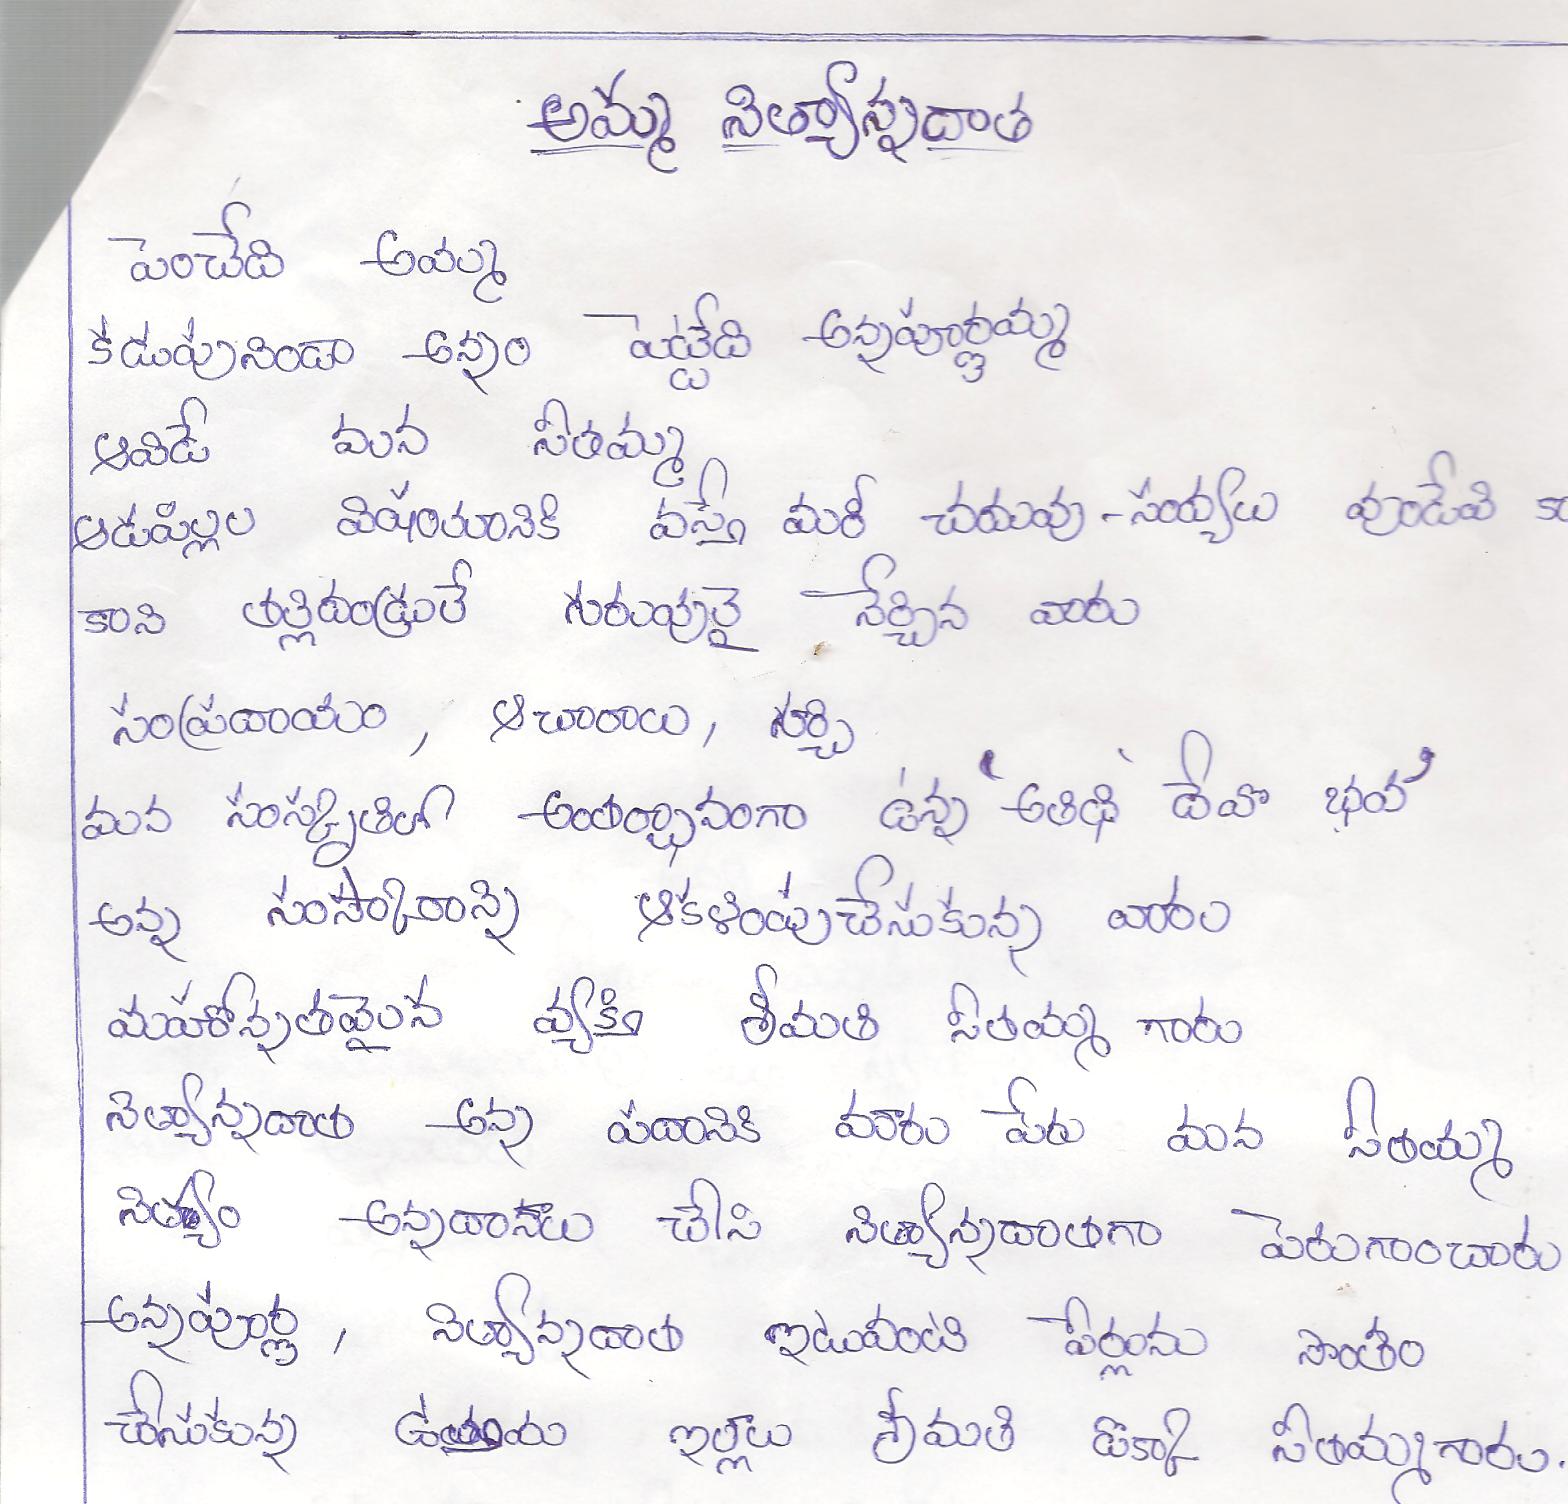 అమ్మ నిత్యాన్నదాత
పెంచేది అమ్మ
కడుపునిండా అన్నం పెట్టేది అన్నపూర్ణమ్మ
ఆవిడే మన సీతమ్మ
ఆడపిల్లల విషయానికి వస్తే మరీ చదువు-సంధ్యలు వుండేవి కా
కాని తల్లిదండ్రులే గురువులై నేర్చిన వారు
సంప్రదాయం, ఆచారాలు, గూర్చి
మన సంస్కృతిలో అంతర్భాగంగా ఉన్న 'అతిథి దేవో భవ'
అన్న సంస్కారాన్ని ఆకళింపుచేసుకున్న వారు
మహోన్నతమైన వ్యక్తి శ్రీమతి సీతమ్మ గారు
నిత్యాన్నదాత అన్న పదానికి మారు పేరు మన సీతమ్మ
నిత్యం అన్నదానాలు చేసి నిత్యాన్నదాతగా పేరుగాంచారు
అన్నపూర్ణ, నిత్యాన్నదాత ఇటువంటి పేర్లును సొంతం
చేసుకున్న ఉత్తమ ఇల్లాలు శ్రీమతి డొక్కా సీతమ్మగారు.